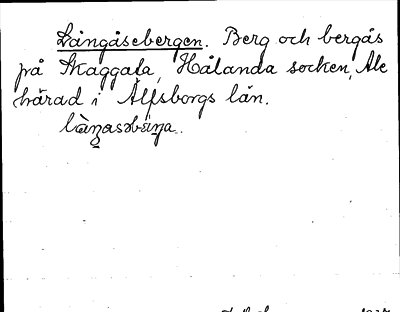 Långåsebergen. Berg och bergås
på Skaggata, Hålanda socken, Ale
härad i Älfsborgs län.